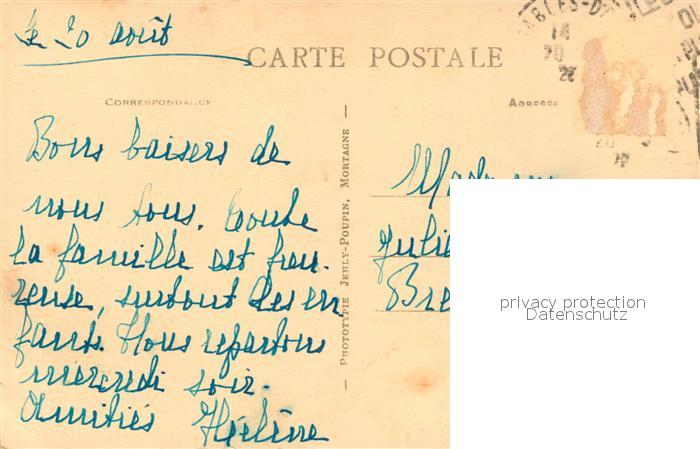 Le 20 août
CARTE POSTALE
CORRESPONDANCE
ADRESSE
Bons baisers de
nous tous. Toute
la famille est heu-
reuse, surtout les en
fants. Nous repartons
mercredi soir.
Amitiés Hélène
PHOTOTYPIE JEHLY-POUPIN, MORTAGNE
14
20
Julie
Bre
privacy protection
Datenschutz